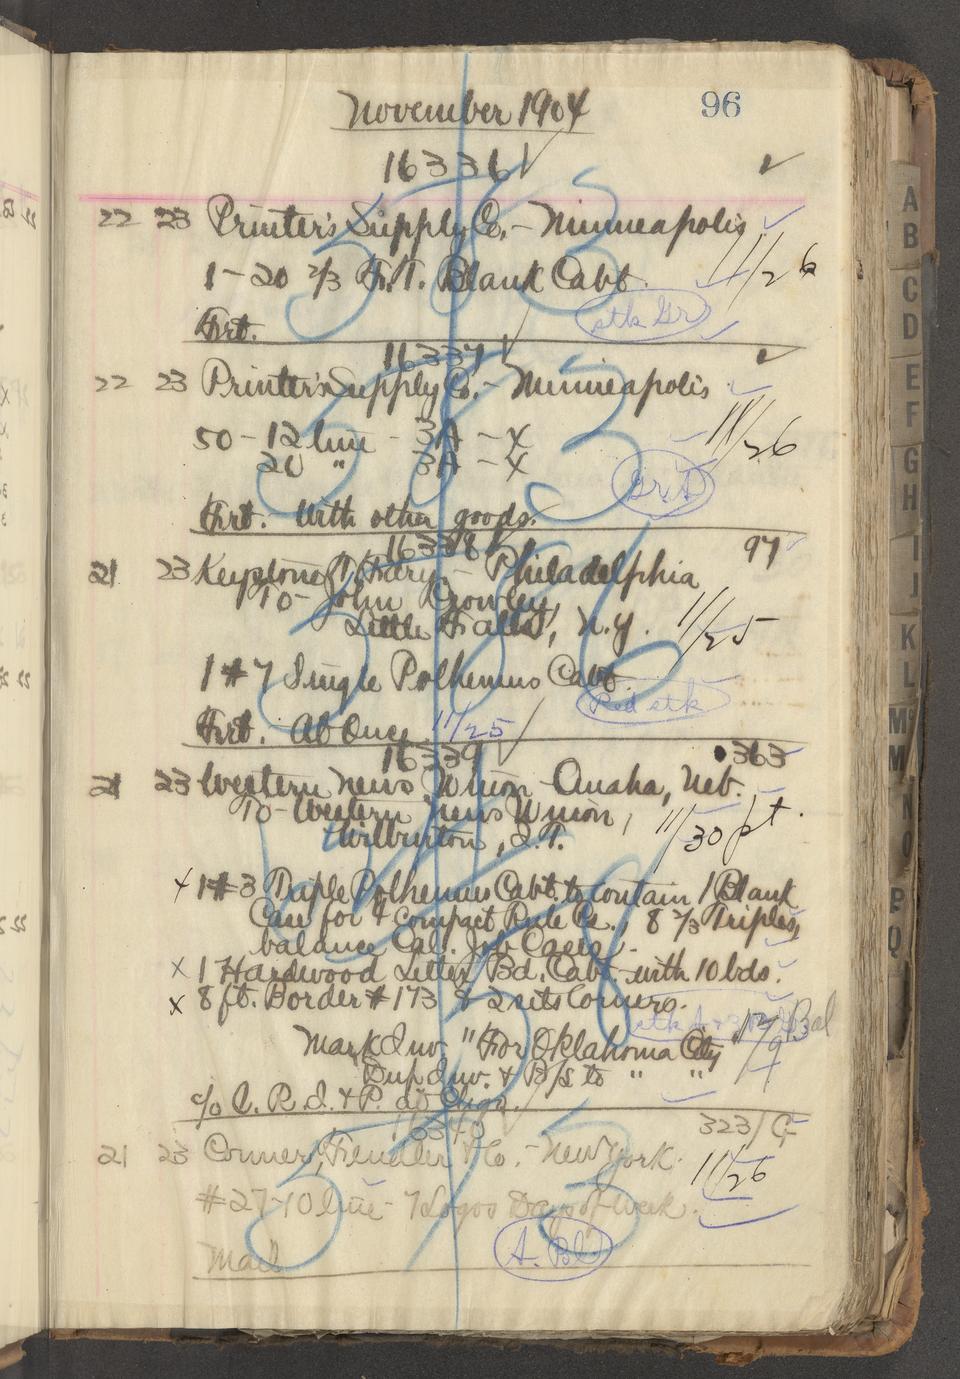 November 1904 96
16336
22 23 Printer's Supply Co. - Minneapolis
1 - 20 2/3 H.T. Blank Cabt. 11/26
stk Gr
Frt.
16337
22 23 Printer's Supply Co. - Minneapolis
50 - 12 line - 3A - X 11/26
20 " 3A - X
Gr. D
Frt. With other goods.
16338 97
21 23 Keystone T. Fdry. - Philadelphia
To - John Crowley,
Little Falls, N.Y. 11/25
1 #7 Single Polhemus Cabt.
Red stk
Frt. At Once 11/25
16339 363
21 23 Western News Union - Omaha, Neb.
To - Western News Union,
Wilburton, I.T. 11/30 pt.
x 1 #3 Triple Polhemus Cabt. to contain 1 Blank
Case for 4 compact Rule Cs., 8 2/3 Triples,
balance Cal. Job Cases.
x 1 Hardwood Letter Bd. Cabt. with 10 bds.
x 8 ft. Border #173 & 2 sets Corners.
Bal
Mark Inv. "For Oklahoma City 12/9
Dup Inv. & B/s to " "
c/o C. R. I. & P. at Chgo.
16340 323/
21 23 Conner, Fendler & Co. - New York. 11/26
#27-10 line - 7 Logos Days of Week.
A. Bl
Mail
A
B
C
D
E
F
G
H
I
J
K
L
M
M
N
O
P
Q